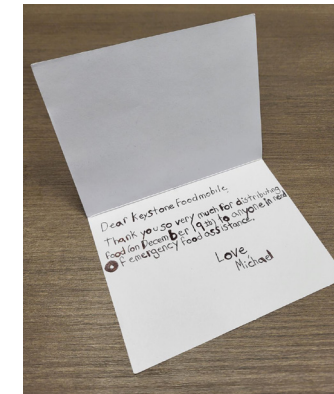 Dear Keystone Foodmobile,
Thank you so very much for distributing
food (on December 19th) to anyone in need
of emergency food assistance.
Love,
Michael